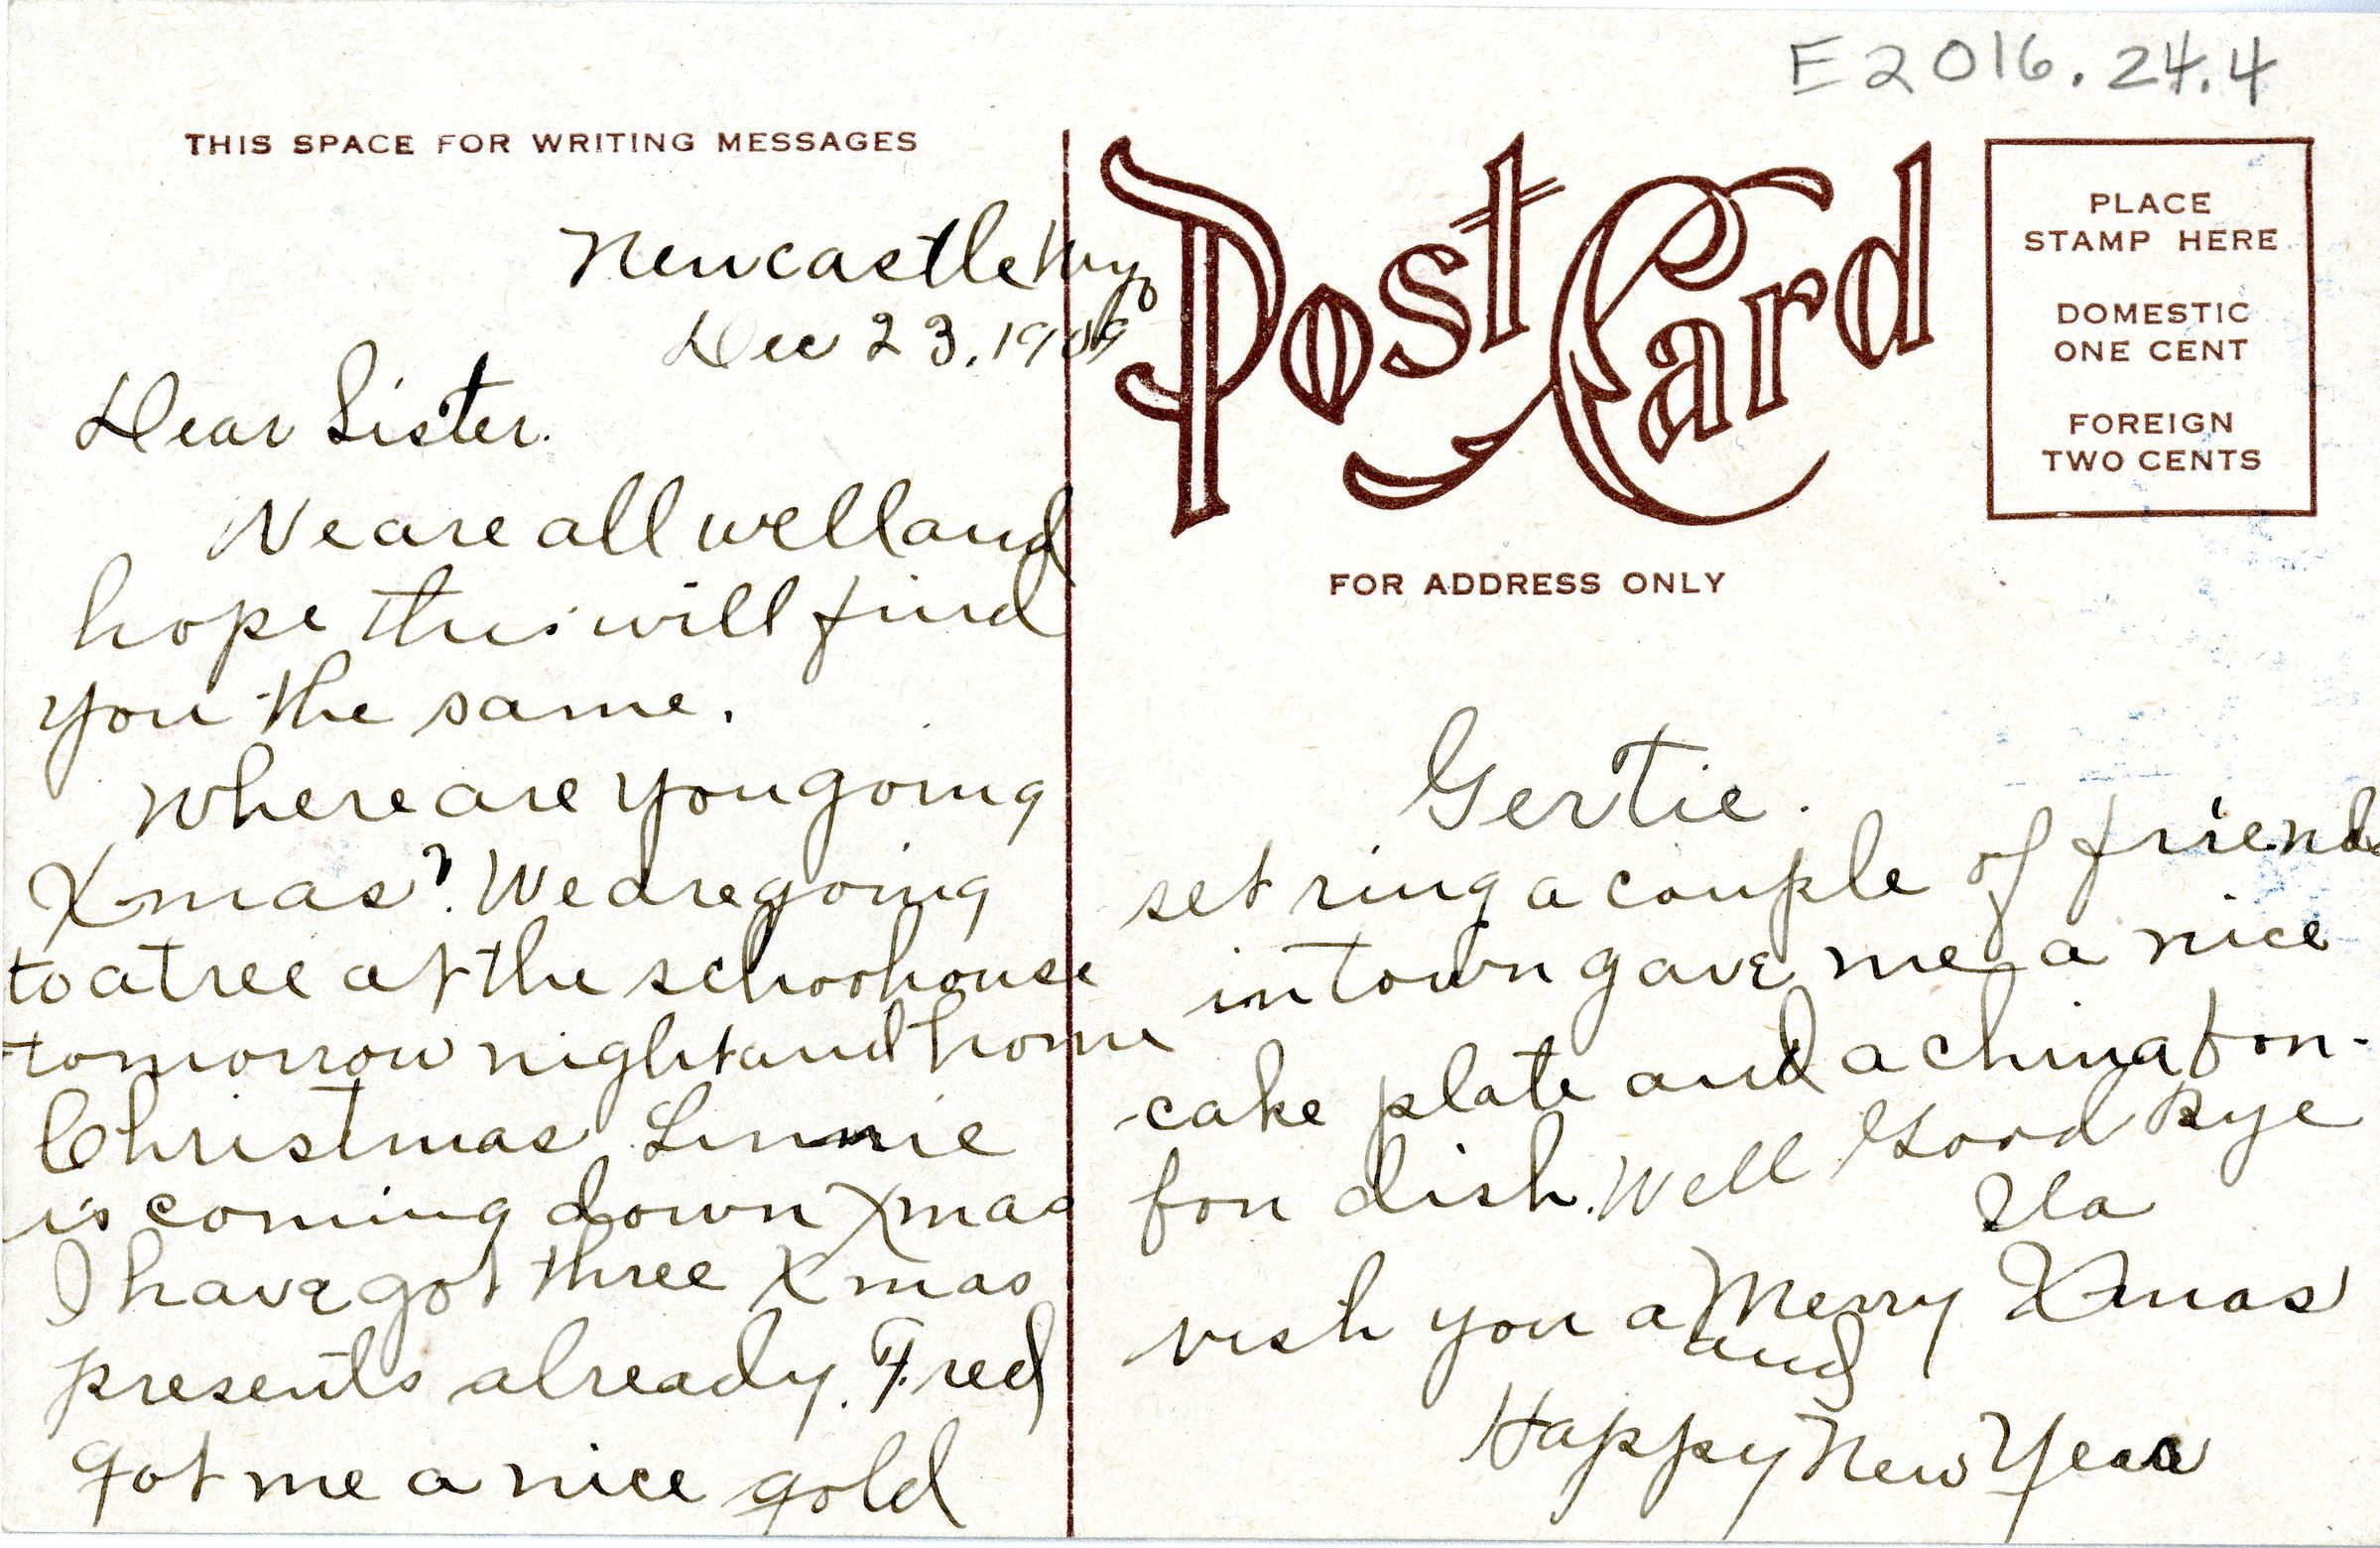 E2016.24.4
THIS SPACE FOR WRITING MESSAGES
Newcastle Wyo
Dec 23, 1909
Dear Sister.
We are all well and
hope this will find
you the same.
Where are you going
Xmas? We are going
to a tree at the schoolhouse
tomorrow night and home
Christmas. Linnie
is coming down Xmas
I have got three Xmas
presents already. Fred
got me a nice gold
Post Card
PLACE
STAMP HERE
DOMESTIC
ONE CENT
FOREIGN
TWO CENTS
FOR ADDRESS ONLY
Gertie.
set ring a couple of friends
in town gave me a nice
cake plate and a china bon-
bon dish. Well Good Bye
Ila
wish you a Merry Xmas
and
Happy New Year